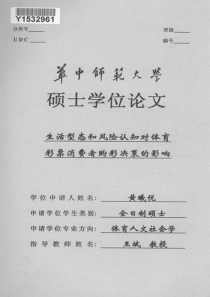 Y1532961
分类号
密级
UDC
编号
华中师范大学
硕士学位论文
生活型态和风险认知对体育
彩票消费者购彩决策的影响
学位申请人姓名：黄曦悦
申请学位学生类别：全日制硕士
申请学位专业方向：体育人文社会学
指导教师姓名：王斌 教授